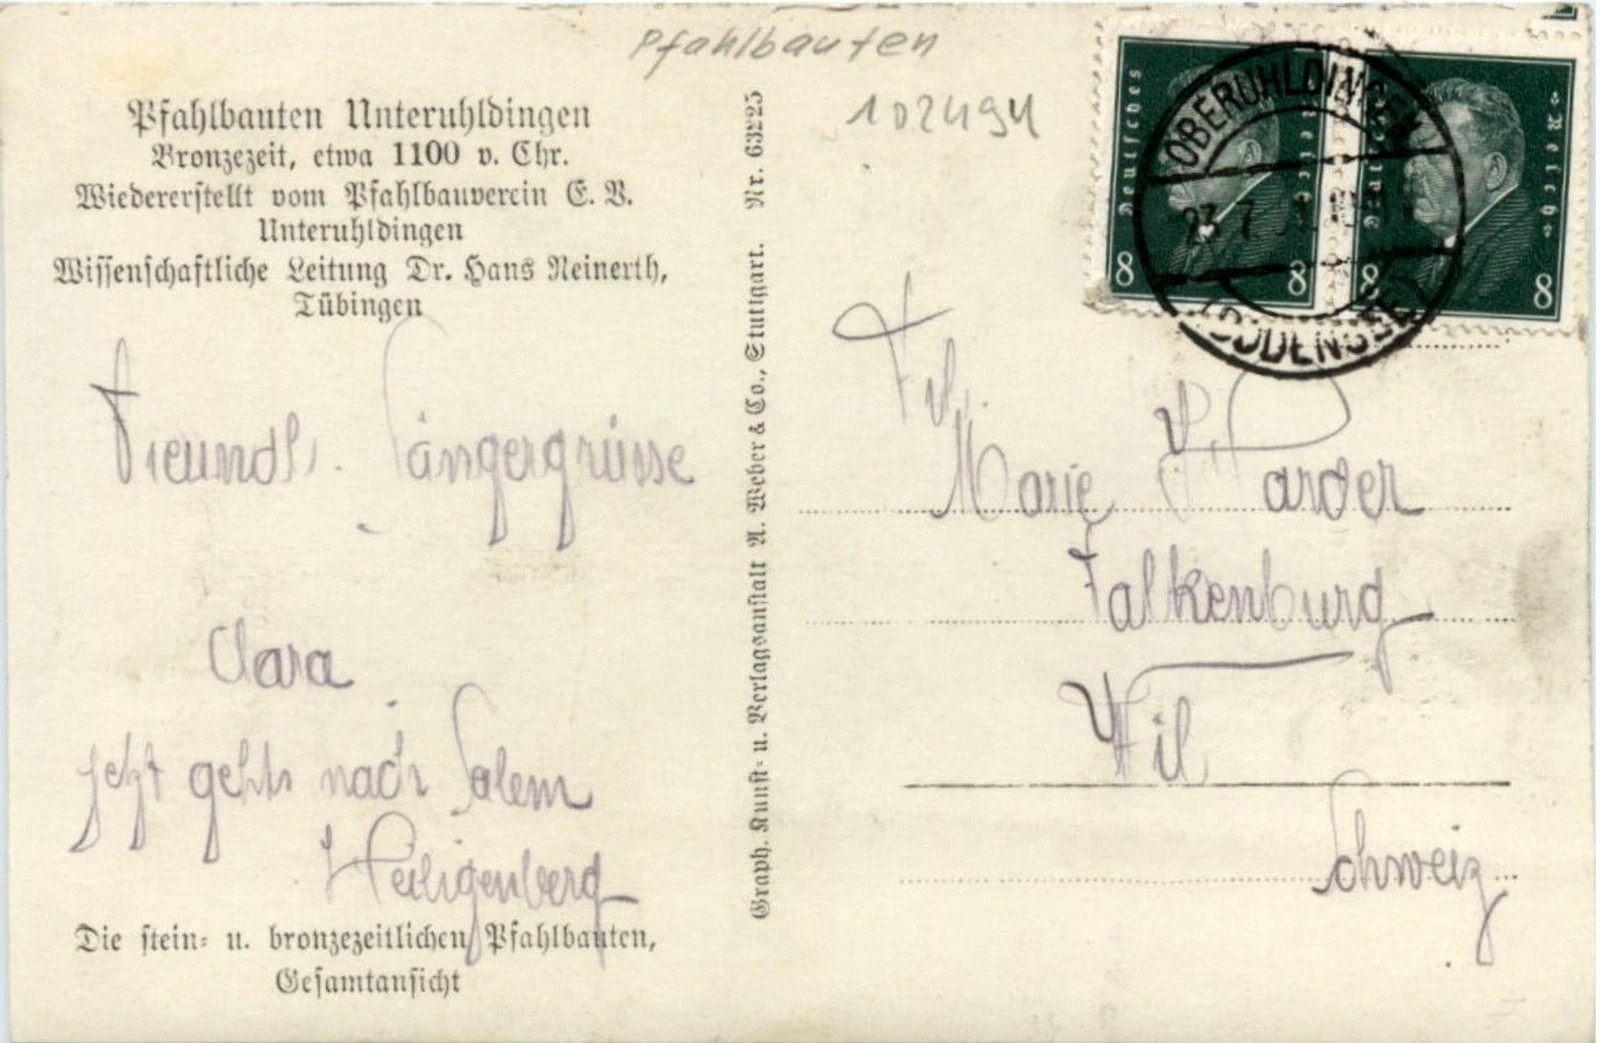 Pfahlbauten
102494
Pfahlbauten Unteruhldingen
Bronzezeit, etwa 1100 v. Chr.
Wiedererstellt vom Pfahlbauverein E. V.
Unteruhldingen
Wissenschaftliche Leitung Dr. Hans Reinerth,
Tübingen
Freundl. Sängergrüsse
Clara
Jetzt gehts nach Salem
Heiligenberg
Die stein- u. bronzezeitlichen Pfahlbauten,
Gesamtansicht
Graph. Kunst- u. Verlagsanstalt A. Weber & Co., Stuttgart. Nr. 63225
Deutsches Reich
8 8
Deutsches Reich
8 8
OBERUHLDINGEN
23.7
(BODENSEE)
Frl.
Marie
Falkenburg
Wil
Schweiz